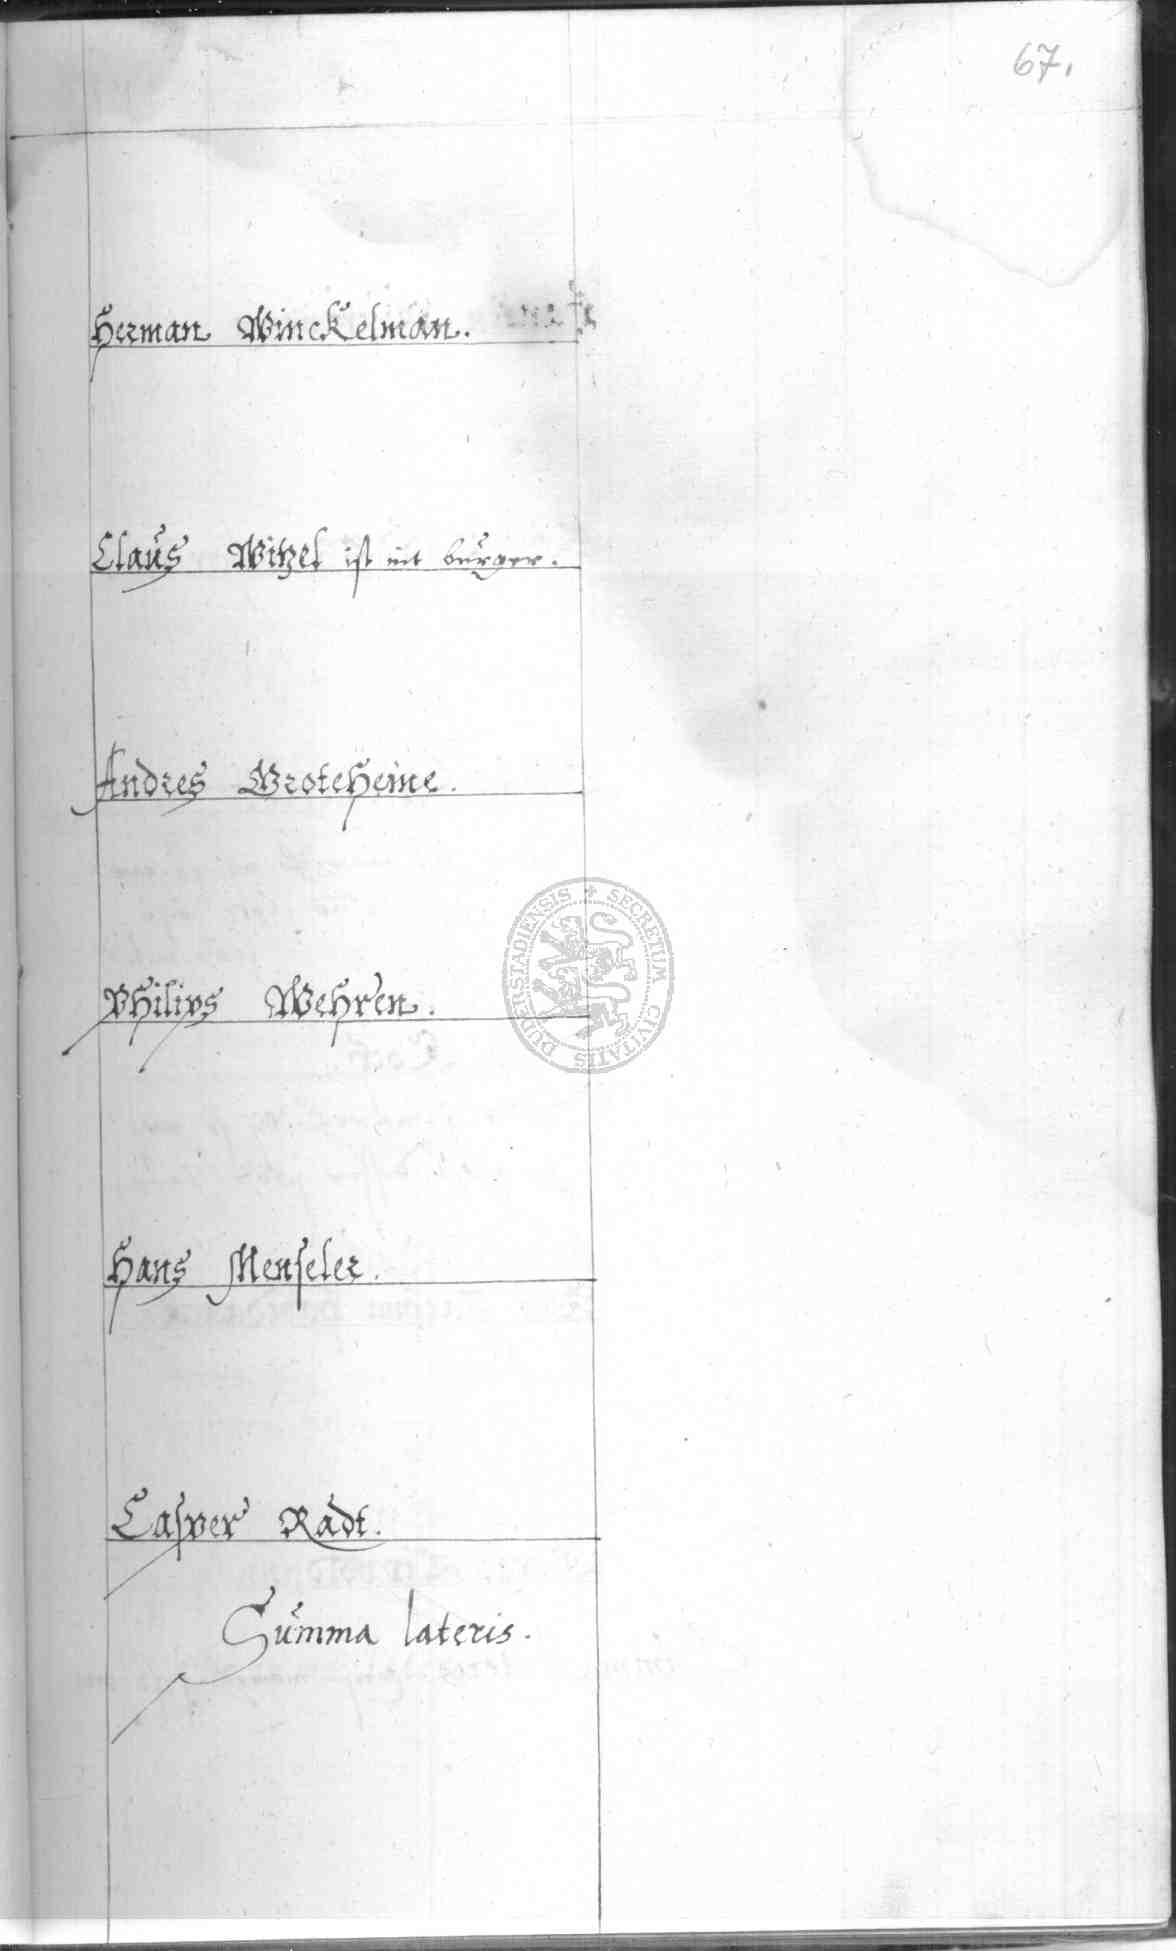 67.
Herman Winckelman.
Claus Witzel ist nit burger.
Andres Groteheine.
Philips Wehren.
SECRETUM CIVITATIS DUDERSTADIENSIS
Hans Menseler.
Casper Radt.
Summa lateris.